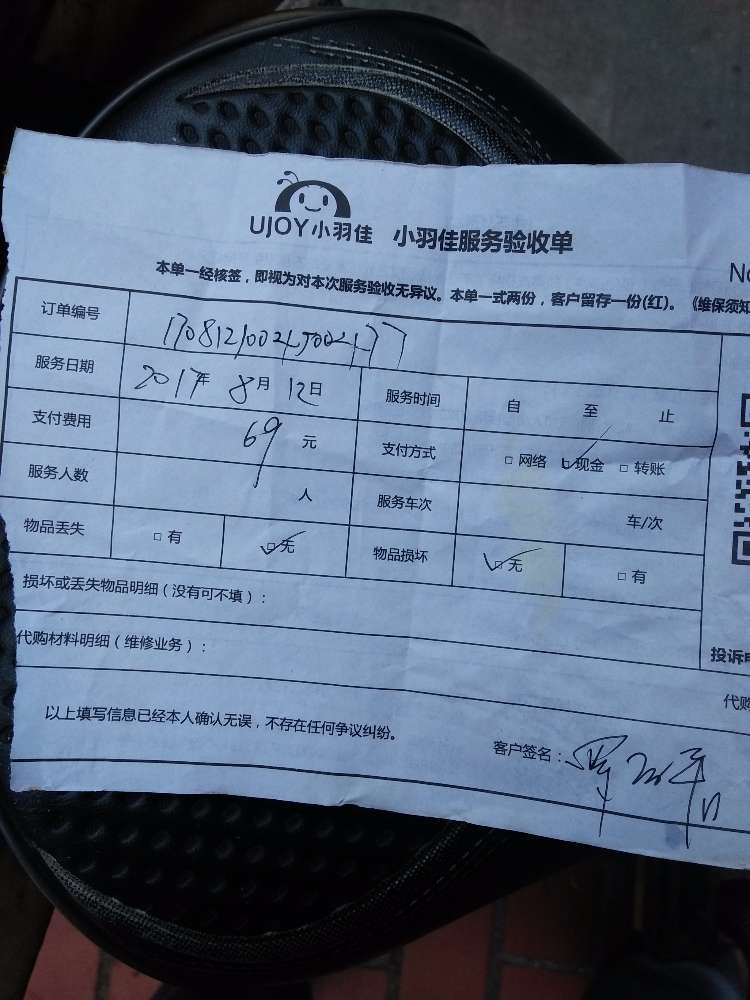 UJOY小羽佳 小羽佳服务验收单
No
本单一经核签，即视为对本次服务验收无异议。本单一式两份，客户留存一份(红)。《维保须知
订单编号
服务日期 2017年 8月 12日 服务时间 自 至 止
支付费用 69 元 支付方式 □ 网络 ☑ 现金 □ 转账
服务人数 人 服务车次 车/次
物品丢失 □ 有 ☑ 无 物品损坏 ☑ 无 □ 有
损坏或丢失物品明细（没有可不填）：
代购材料明细（维修业务）：
投诉电
代购
以上填写信息已经本人确认无误，不存在任何争议纠纷。
客户签名：